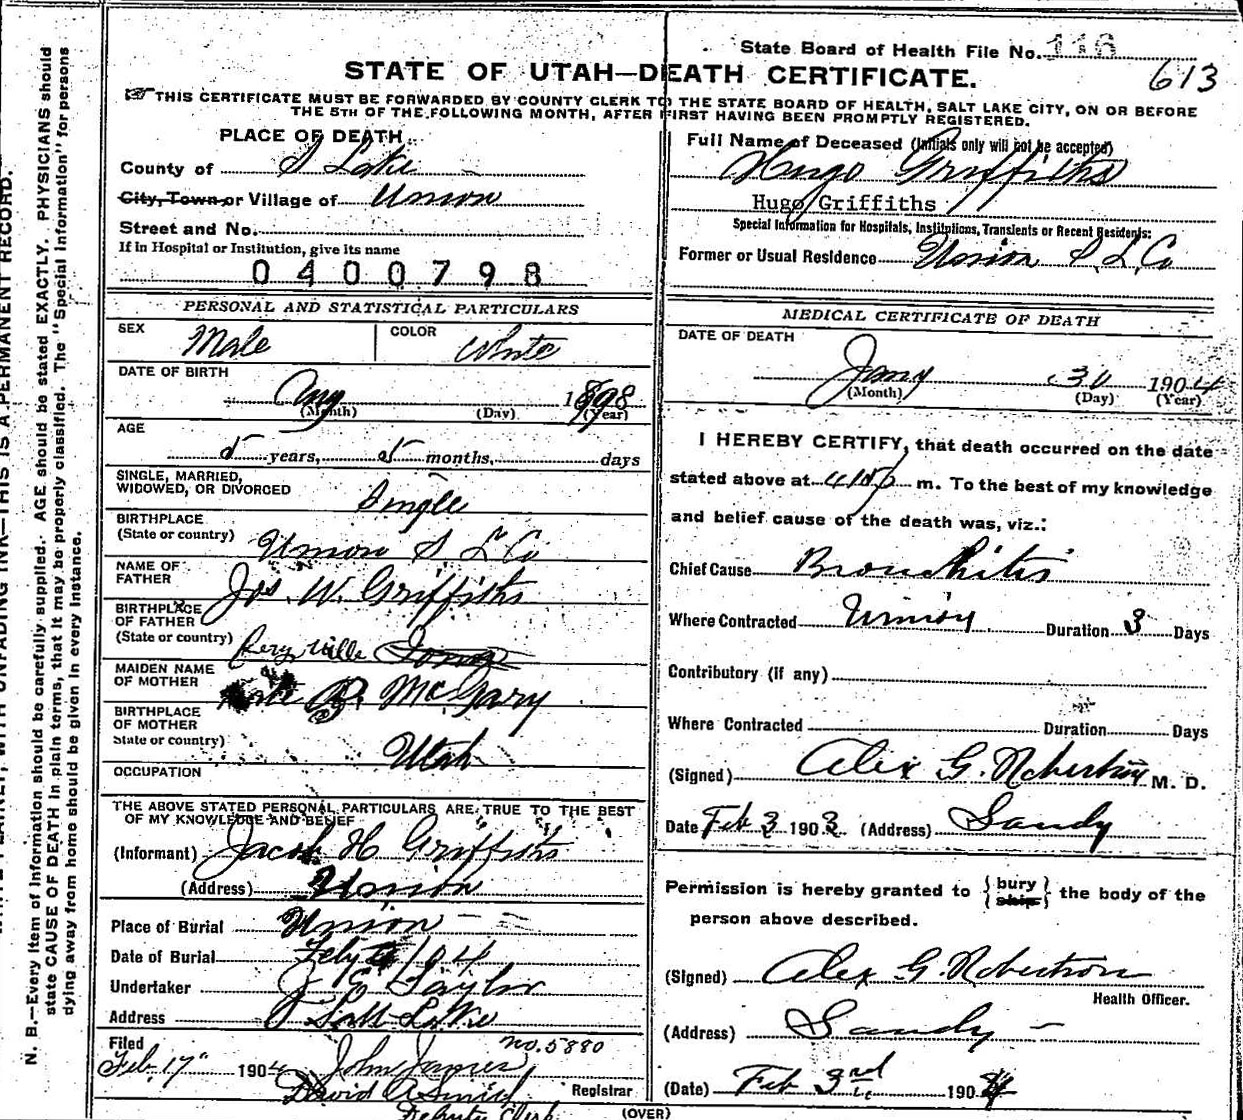 State Board of Health File No. 116
613
STATE OF UTAH—DEATH CERTIFICATE.
THIS CERTIFICATE MUST BE FORWARDED BY COUNTY CLERK TO THE STATE BOARD OF HEALTH, SALT LAKE CITY, ON OR BEFORE
THE 5TH OF THE FOLLOWING MONTH, AFTER FIRST HAVING BEEN PROMPTLY REGISTERED.
PLACE OF DEATH
County of S Lake
City, Town, or Village of Union
Street and No.
If in Hospital or Institution, give its name
0400798
Full Name of Deceased (Initials only will not be accepted)
Hugo Griffiths
Hugo Griffiths
Special Information for Hospitals, Institutions, Transients or Recent Residents:
Former or Usual Residence Union S. L. Co
PERSONAL AND STATISTICAL PARTICULARS
SEX Male COLOR White
DATE OF BIRTH
Aug 1898
(Month) (Day) (Year)
AGE
5 years, 5 months, days
SINGLE, MARRIED,
WIDOWED, OR DIVORCED Single
BIRTHPLACE
(State or country) Union S L Co
NAME OF
FATHER Jos. W. Griffiths
BIRTHPLACE
OF FATHER
(State or country) ville
MAIDEN NAME
OF MOTHER McGary
BIRTHPLACE
OF MOTHER
State or country) Utah
OCCUPATION
THE ABOVE STATED PERSONAL PARTICULARS ARE TRUE TO THE BEST
OF MY KNOWLEDGE AND BELIEF
(Informant) Jacob H Griffiths
(Address) Union
Place of Burial Union
Date of Burial Feby 1904
Undertaker J E Taylor
Address S Salt Lake
Filed no. 5880
Feb. 17" 1904 John James
David A Smith Registrar
Deputy Clerk
MEDICAL CERTIFICATE OF DEATH
DATE OF DEATH
Jany 30 1904
(Month) (Day) (Year)
I HEREBY CERTIFY, that death occurred on the date
stated above at m. To the best of my knowledge
and belief cause of the death was, viz.:
Chief Cause Bronchitis
Where Contracted Union Duration 3 Days
Contributory (if any)
Where Contracted Duration Days
(Signed) Alex G. Robertson M. D.
Date Feb 3 1903 (Address) Sandy
Permission is hereby granted to {bury ship} the body of the
person above described.
(Signed) Alex G. Robertson
Health Officer.
(Address) Sandy
(Date) Feb 3rd 1904
(OVER)
N. B.—Every item of information should be carefully supplied. AGE should be stated EXACTLY. PHYSICIANS should
state CAUSE OF DEATH in plain terms, that it may be properly classified. The "Special Information" for persons
dying away from home should be given in every instance.
WITH UNFADING INK—THIS IS A PERMANENT RECORD.